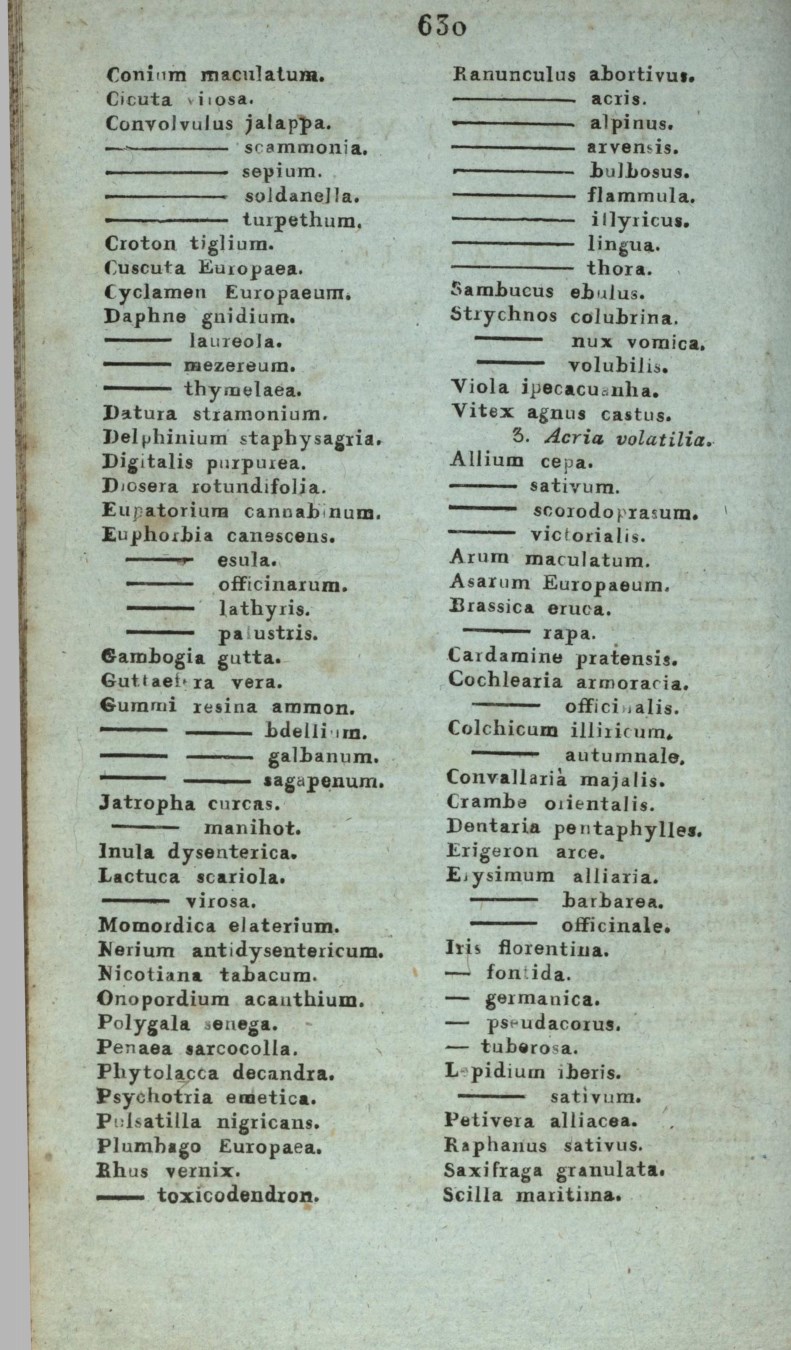 630
Conium maculatum.
Cicuta virosa.
Convolvulus jalappa.
——— scammonia.
——— sepium.
——— soldanella.
——— turpethum.
Croton tiglium.
Cuscuta Europaea.
Cyclamen Europaeum.
Daphne gnidium.
——— laureola.
——— mezereum.
——— thymelaea.
Datura stramonium.
Delphinium staphysagria.
Digitalis purpurea.
Drosera rotundifolia.
Eupatorium cannabinum.
Euphorbia canescens.
——— esula.
——— officinarum.
——— lathyris.
——— palustris.
Gambogia gutta.
Guttaefera vera.
Gummi resina ammon.
——— ——— bdellium.
——— ——— galbanum.
——— ——— sagapenum.
Jatropha curcas.
——— manihot.
Inula dysenterica.
Lactuca scariola.
——— virosa.
Momordica elaterium.
Nerium antidysentericum.
Nicotiana tabacum.
Onopordium acanthium.
Polygala senega.
Penaea sarcocolla.
Phytolacca decandra.
Psychotria emetica.
Pulsatilla nigricans.
Plumbago Europaea.
Rhus vernix.
——— toxicodendron.
Ranunculus abortivus.
——— acris.
——— alpinus.
——— arvensis.
——— bulbosus.
——— flammula.
——— illyricus.
——— lingua.
——— thora.
Sambucus ebulus.
Strychnos colubrina.
——— nux vomica.
——— volubilis.
Viola ipecacuanha.
Vitex agnus castus.
3. Acria volatilia.
Allium cepa.
——— sativum.
——— scorodoprasum.
——— victorialis.
Arum maculatum.
Asarum Europaeum.
Brassica eruca.
——— rapa.
Cardamine pratensis.
Cochlearia armoracia.
——— officinalis.
Colchicum illiricum.
——— autumnale.
Convallaria majalis.
Crambe orientalis.
Dentaria pentaphylles.
Erigeron arce.
Erysimum alliaria.
——— barbarea.
——— officinale.
Iris florentina.
— fontida.
— germanica.
— pseudacorus.
— tuberosa.
Lepidium iberis.
——— sativum.
Petivera alliacea.
Raphanus sativus.
Saxifraga granulata.
Scilla maritima.